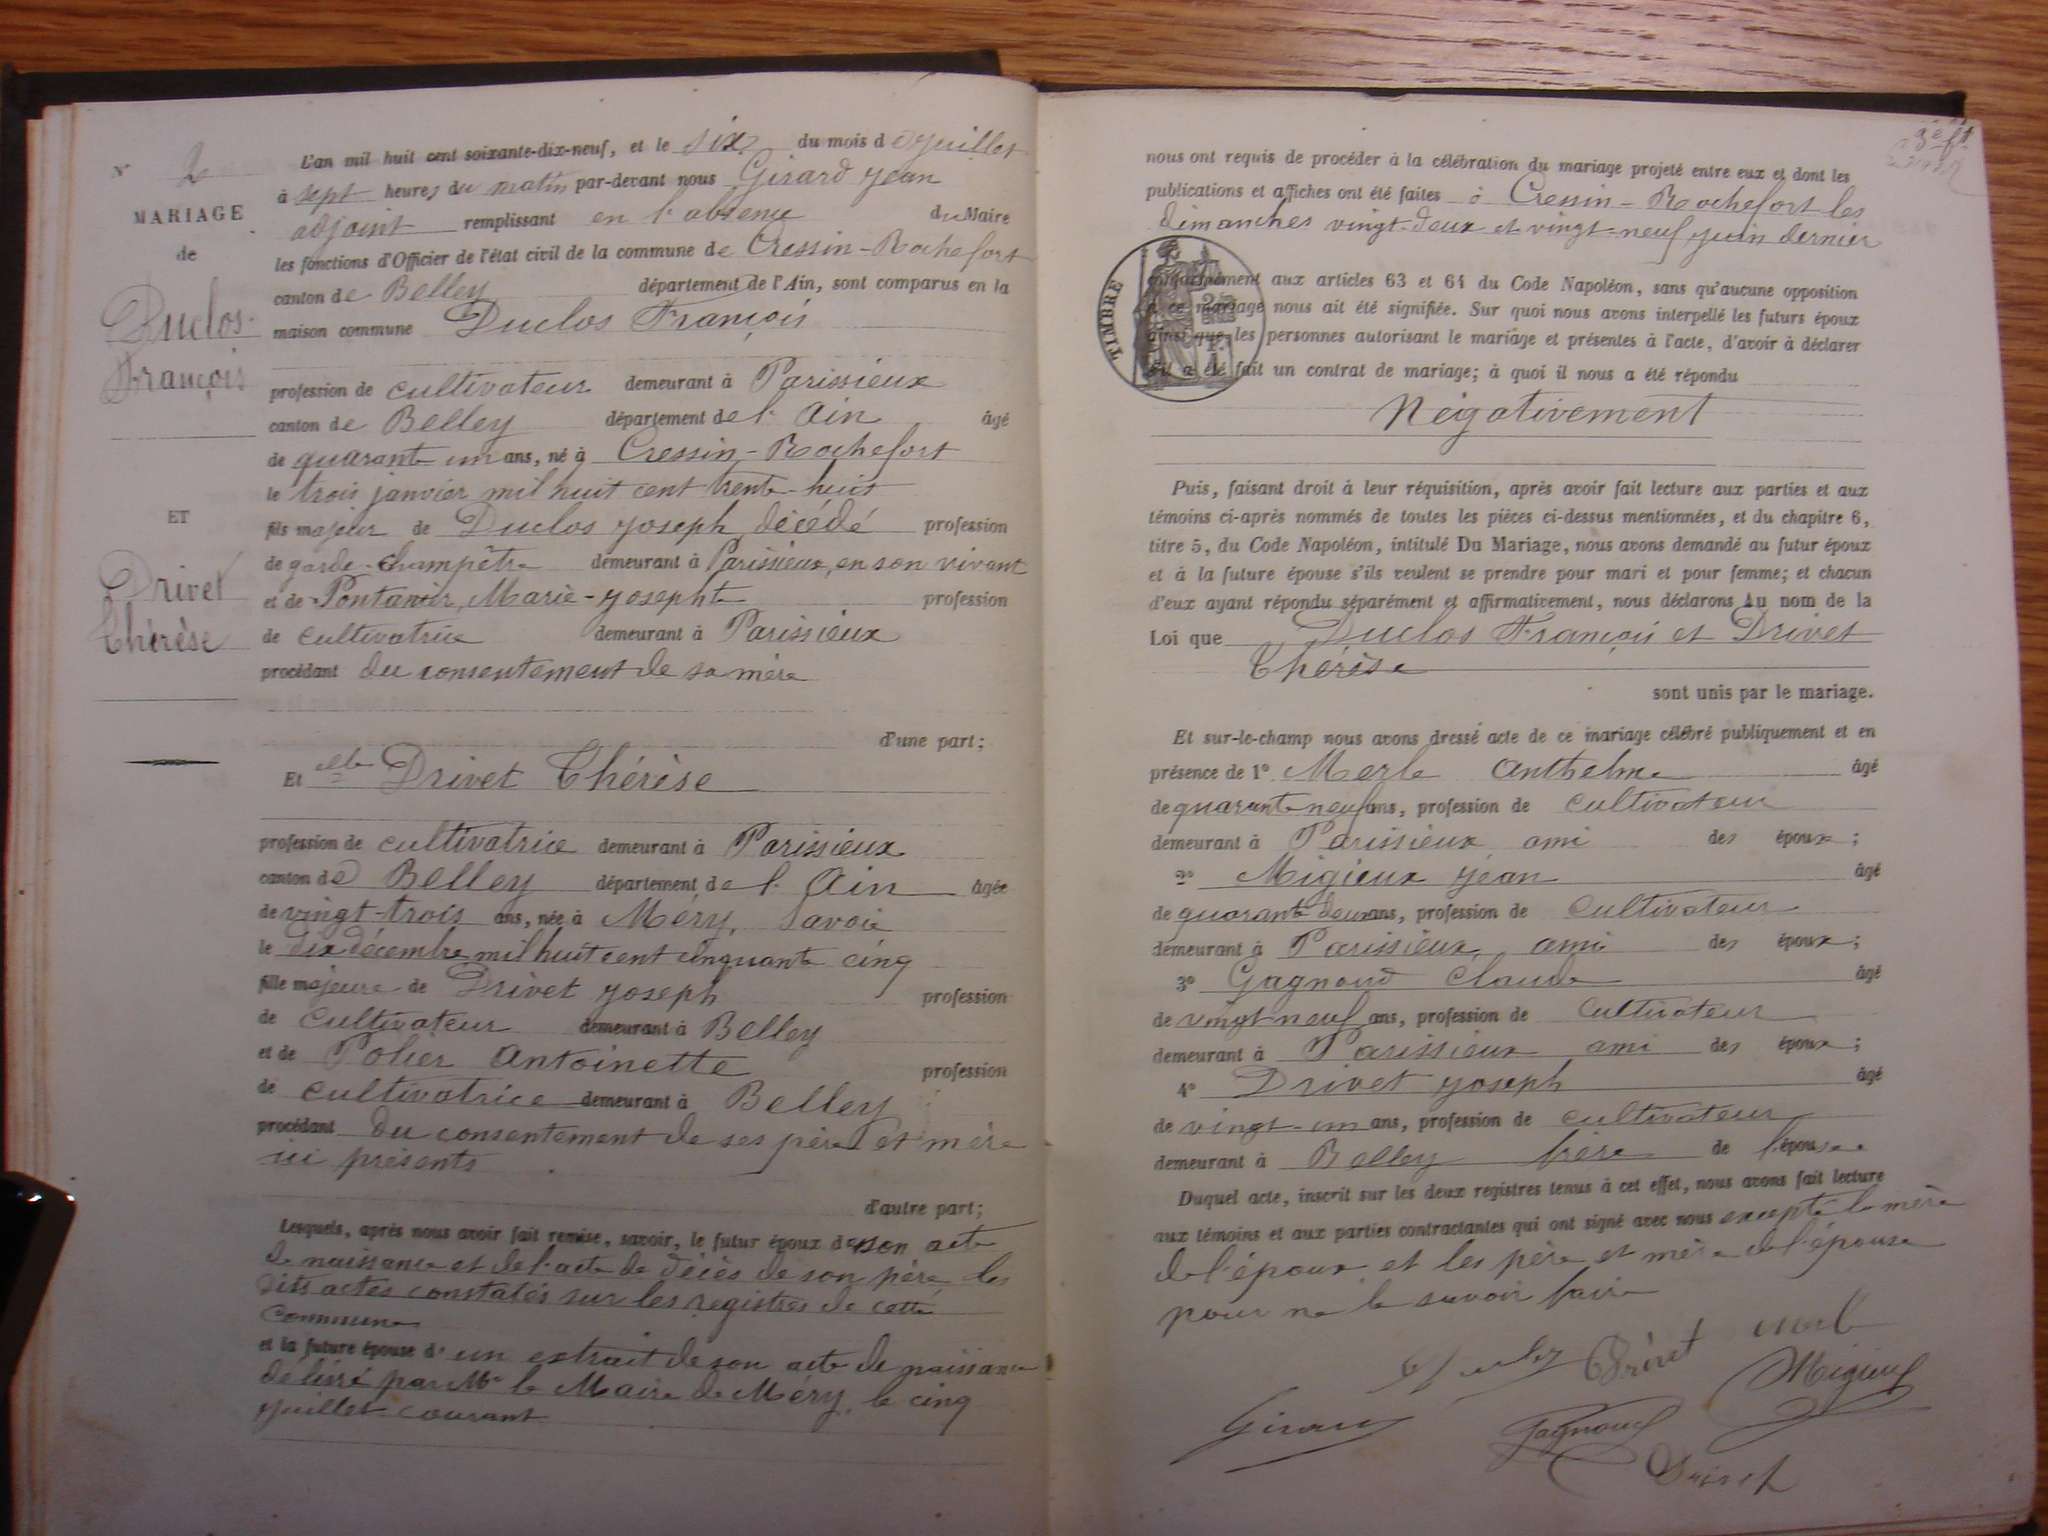 N° 2
MARIAGE
de
Duclos
François
ET
Drivet
Thérèse
L'an mil huit cent soixante-dix-neuf, et le six du mois de Juillet
à sept heures du matin par-devant nous Girard Jean
adjoint remplissant en l'absence du Maire
les fonctions d'Officier de l'état civil de la commune de Cressin-Rochefort
canton de Belley département de l'Ain, sont comparus en la
maison commune Duclos François
profession de cultivateur demeurant à Parissieux
canton de Belley département de l'Ain âgé
de quarante un ans, né à Cressin-Rochefort
le trois janvier mil huit cent trente-huit
fils majeur de Duclos Joseph, décédé profession
de garde-champêtre demeurant à Parissieux, en son vivant
et de Marie-Josephte profession
de cultivatrice demeurant à Parissieux
procédant du consentement de sa mère
d'une part;
Et elle Drivet Thérèse
profession de cultivatrice demeurant à Parissieux
canton de Belley département de l'Ain âgée
de vingt-trois ans, née à Méry, Savoie
le dix décembre mil huit cent cinquante cinq
fille majeure de Drivet Joseph profession
de cultivateur demeurant à Belley
et de Polier Antoinette profession
de cultivatrice demeurant à Belley
procédant du consentement de ses père et mère
ici présents
d'autre part;
Lesquels, après nous avoir fait remise, savoir, le futur époux de son acte
de naissance et de l'acte de décès de son père, les
dits actes constatés sur les registres de cette
commune
et la future épouse d'un extrait de son acte de naissance
délivré par Mr le Maire de Méry, le cinq
juillet courant
nous ont requis de procéder à la célébration du mariage projeté entre eux et dont les
publications et affiches ont été faites à Cressin-Rochefort les
dimanches vingt-deux et vingt-neuf juin dernier
TIMBRE
conformément aux articles 63 et 64 du Code Napoléon, sans qu'aucune opposition
à ce mariage nous ait été signifiée. Sur quoi nous avons interpellé les futurs époux
ainsi que les personnes autorisant le mariage et présentes à l'acte, d'avoir à déclarer
s'il a été fait un contrat de mariage; à quoi il nous a été répondu
Négativement
Puis, faisant droit à leur réquisition, après avoir fait lecture aux parties et aux
témoins ci-après nommés de toutes les pièces ci-dessus mentionnées, et du chapitre 6,
titre 5, du Code Napoléon, intitulé Du Mariage, nous avons demandé au futur époux
et à la future épouse s'ils veulent se prendre pour mari et pour femme; et chacun
d'eux ayant répondu séparément et affirmativement, nous déclarons Au nom de la
Loi que Duclos François et Drivet
Thérèse
sont unis par le mariage.
Et sur-le-champ nous avons dressé acte de ce mariage célébré publiquement et en
présence de 1° Merle Anthelme âgé
de quarante neuf ans, profession de cultivateur
demeurant à Parissieux ami des époux;
2° Migieux Jean âgé
de quarante deux ans, profession de cultivateur
demeurant à Parissieux, ami des époux;
3° Gagnoud Claude âgé
de vingt neuf ans, profession de cultivateur
demeurant à Parissieux ami des époux;
4° Drivet Joseph âgé
de vingt-un ans, profession de cultivateur
demeurant à Belley frère de l'épouse
Duquel acte, inscrit sur les deux registres tenus à cet effet, nous avons fait lecture
aux témoins et aux parties contractantes qui ont signé avec nous excepté la mère
de l'époux et les père et mère de l'épouse
pour ne le savoir faire
Drivet Merle
Girard Gagnoud Migieux
Drivet